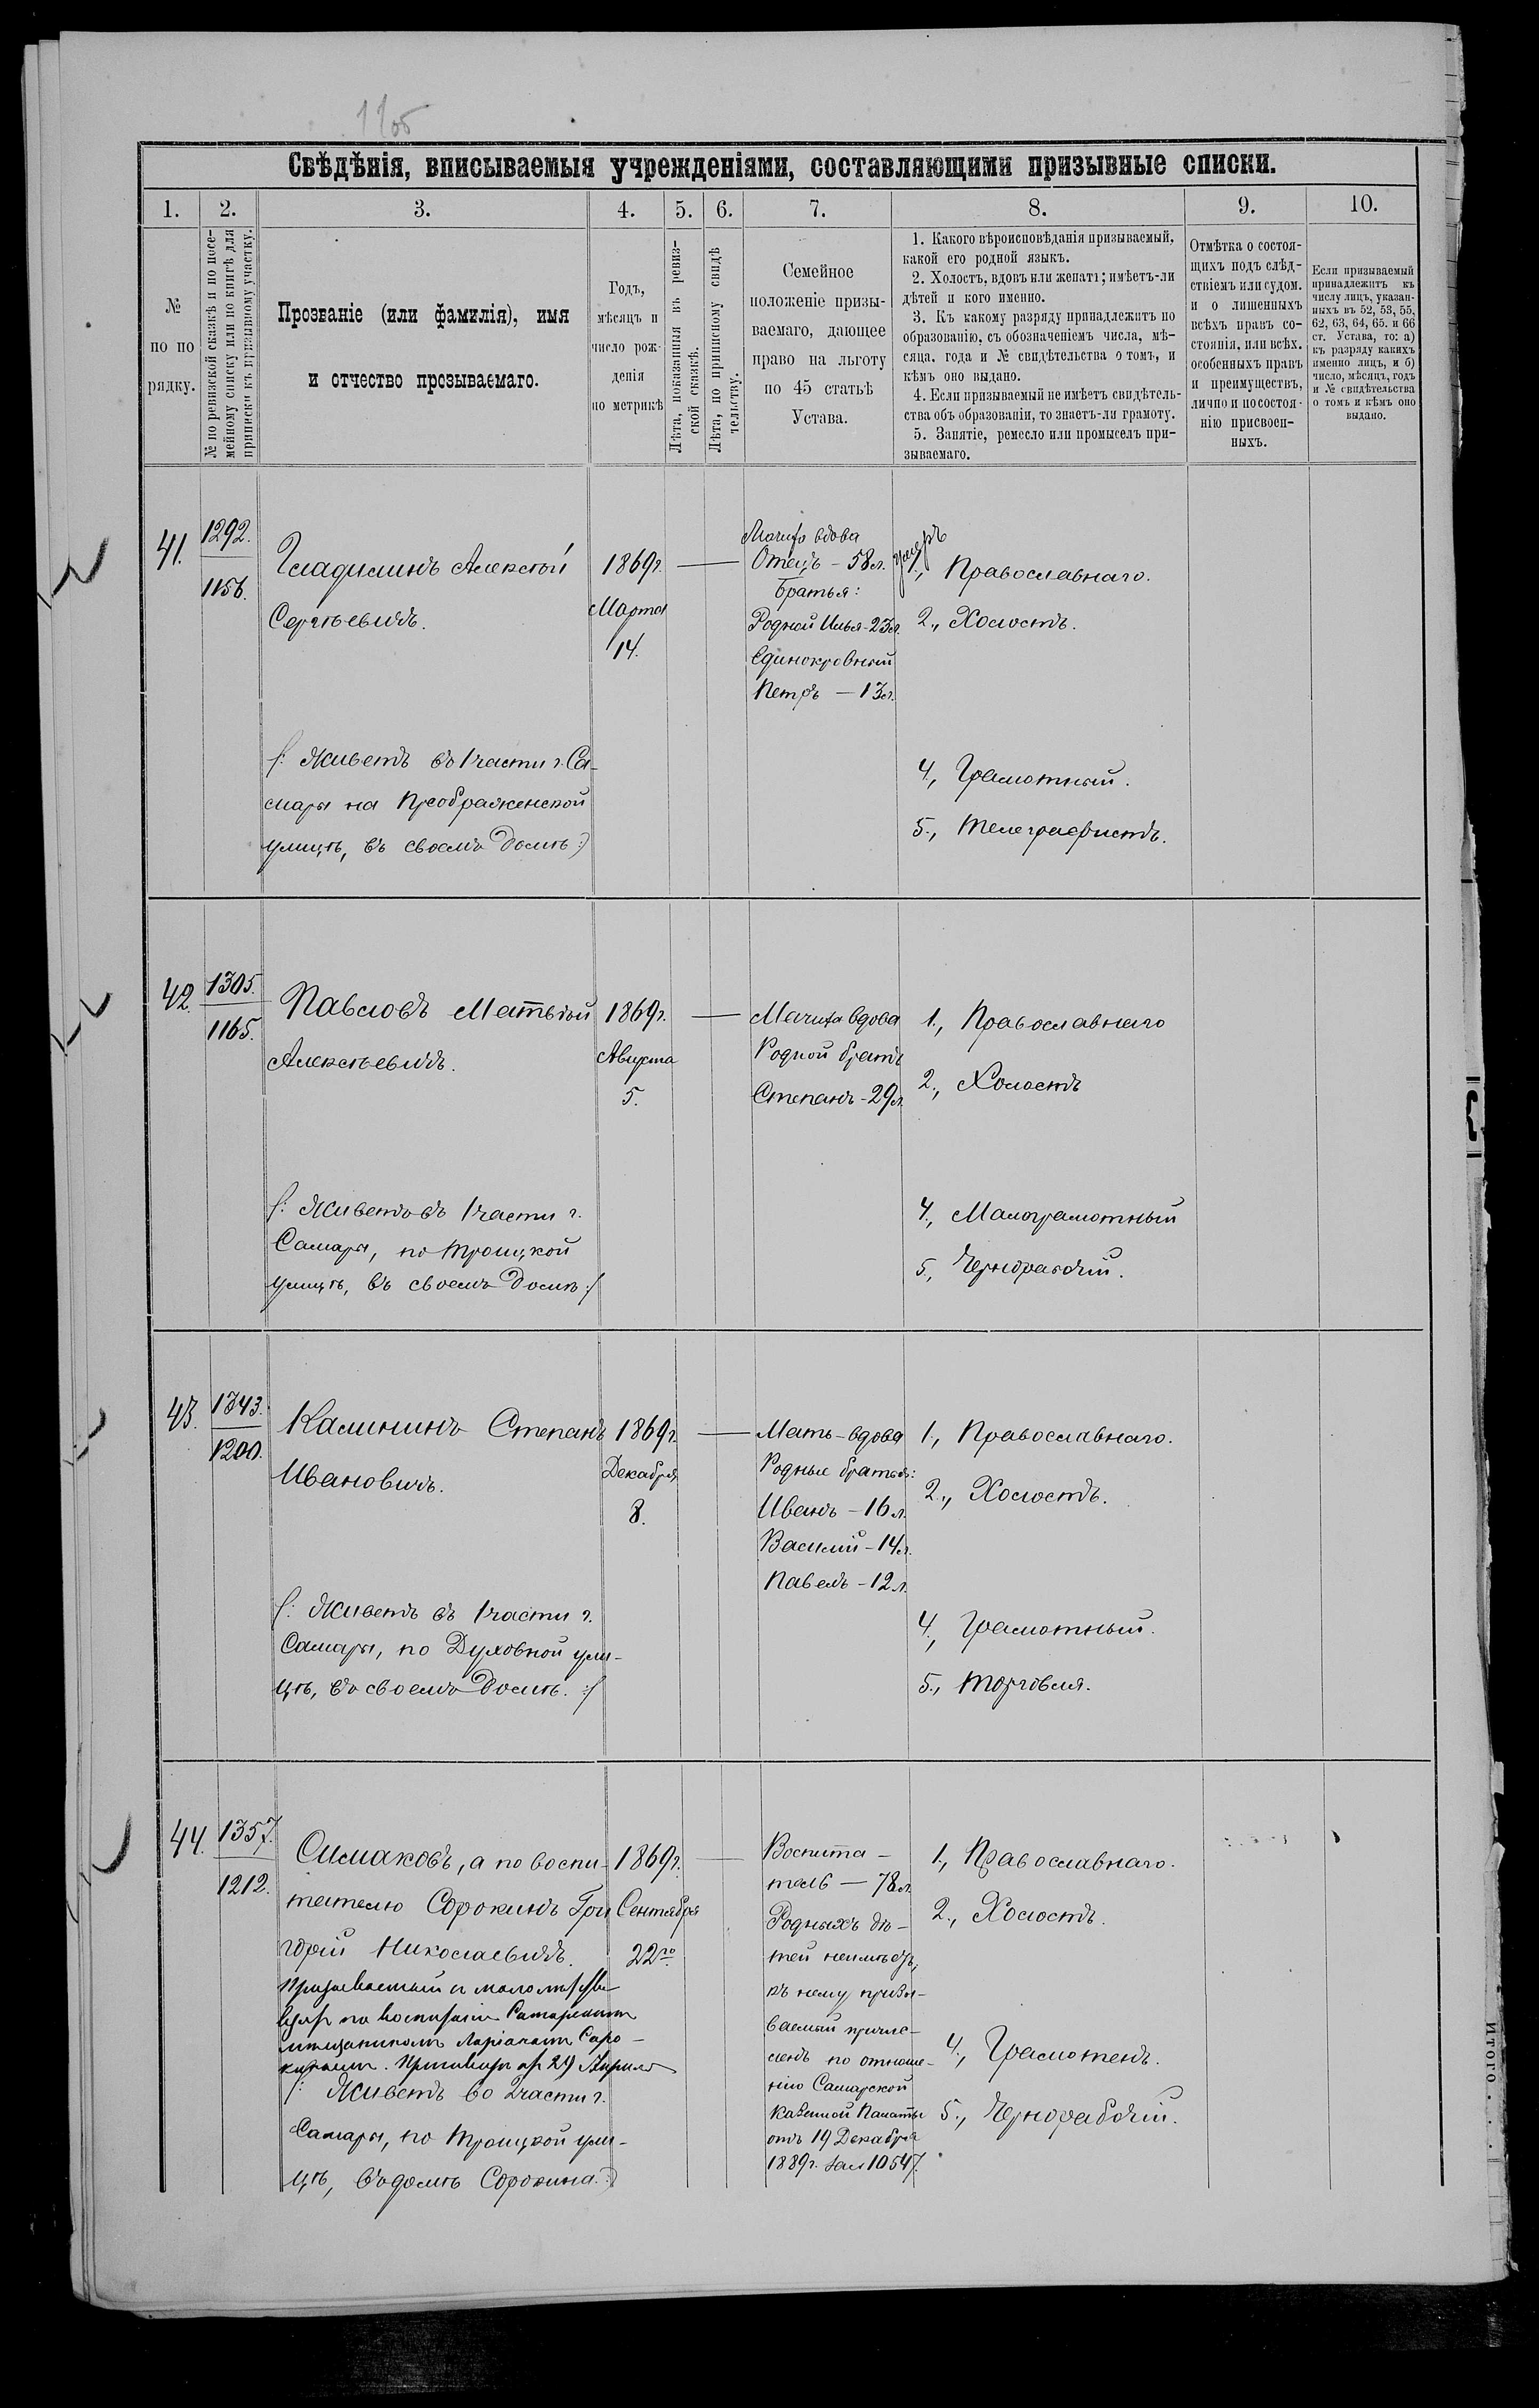 Свѣдѣнія, вписываемыя учрежденіями, составляющими призывные списки.
1.
2.
3.
4.
5.
6.
7.
8.
9.
10.
№
по по
рядку.
№ по ревизской сказкѣ и по посе-
мейному списку или по книгѣ для
приписки къ призывному участку.
Прозваніе (или фамилія), имя
и отчество прозываемаго.
Годъ,
мѣсяцъ и
число рож-
денія
по метрикѣ
Лѣта, показанныя въ ревиз-
ской сказкѣ.
Лѣта, по приписному свидѣ
тельству.
Семейное
положеніе призы-
ваемаго, дающее
право на льготу
по 45 статьѣ
Устава.
1. Какого вѣроисповѣданія призываемый,
какой его родной языкъ.
2. Холостъ, вдовъ или женатъ; имѣетъ-ли
дѣтей и кого именно.
3. Къ какому разряду принадлежитъ по
образованію, съ обозначеніемъ числа, мѣ-
сяца, года и № свидѣтельства о томъ, и
кѣмъ оно выдано.
4. Если призываемый не имѣетъ свидѣтель-
ства объ образованіи, то знаетъ-ли грамоту.
5. Занятіе, ремесло или промыселъ при-
зываемаго.
Отмѣтка о состоя-
щихъ подъ слѣд-
ствіемъ или судом.
и о лишенныхъ
всѣхъ правъ со-
стоянія, или всѣх.
особенныхъ правъ
и преимуществъ,
лично и по состоя-
нію присвоен-
ныхъ.
Если призываемый
принадлежитъ къ
числу лицъ, указан-
ныхъ въ 52, 53, 55,
62, 63, 64, 65. и 66
ст. Устава, то: а)
къ разряду какихъ
именно лицъ, и б)
число, мѣсяцъ, годъ
и № свидѣтельства
о томъ и кѣмъ оно
выдано.
41.
1292.
1156.
Гладилинъ Алексѣй
Сергѣевичъ.
(: Живетъ въ 1 части г. Са-
мары на Преображенской
улицѣ, въ своемъ домѣ :)
1869 г.
Марта
14.
Мачиха вдова
Отецъ - 58 л. умеръ
Братья:
Родной Илья - 23 л.
Единокровный
Петръ - 13 л.
1., Православнаго.
2., Холостъ.
4., Грамотный.
5., Телеграфистъ.
42.
1305.
1165.
Павловъ Матвѣй
Алексѣевичъ.
(: Живетъ въ 1 части г.
Самары, по Троицкой
улицѣ, въ своемъ домѣ :/
1869 г.
Августа
5.
Мачиха вдова
Родной братъ
Степанъ - 29 л.
1., Православнаго
2., Холостъ
4., Малограмотный
5., Чернорабочій.
43.
1343.
1200.
Калининъ Степанъ
Ивановичъ.
(: Живетъ въ 1 части г.
Самары, по Духовной ули-
цѣ, въ своемъ домѣ. :/
1869 г.
Декабря
8.
Мать - вдова
Родные братья:
Иванъ - 16 л.
Василий - 14 л.
Павелъ - 12 л.
1., Православнаго.
2., Холостъ.
4., Грамотный.
5., Торговля.
44.
1357.
1212.
Симаковъ, а по воспи-
тателю Сорокинъ Гри
горій Николаевичъ.
Призываемый с малолѣт
по Самарскимъ
мещаниномъ Саро-
кинымъ. 29 Апреля
(: Живетъ во 2 части г.
Самары, по Троицкой ули-
цѣ, въ домѣ Сорокина. :)
1869 г.
Сентября
22го
Воспита-
тель - 78 л.
Родныхъ дѣ-
тей неимѣетъ,
къ нему призы-
ваемый причис-
ленъ по отноше-
нію Самарской
Казенной Палаты
отъ 19 Декабря
1889 г. за № 10547.
1., Православнаго.
2., Холостъ.
4., Грамотенъ.
5., Чернорабочій.
Итого . . .